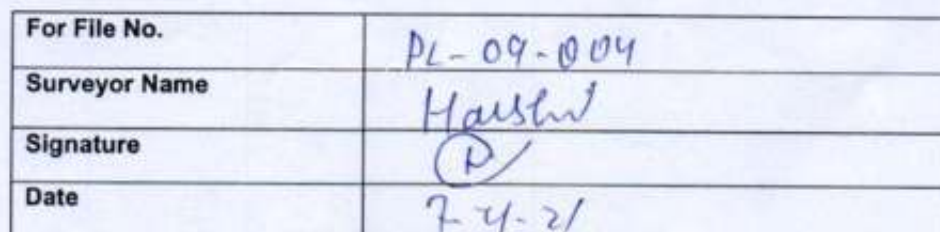 For File No. PL-09-004
Surveyor Name Harshit
Signature
Date 7-4-21